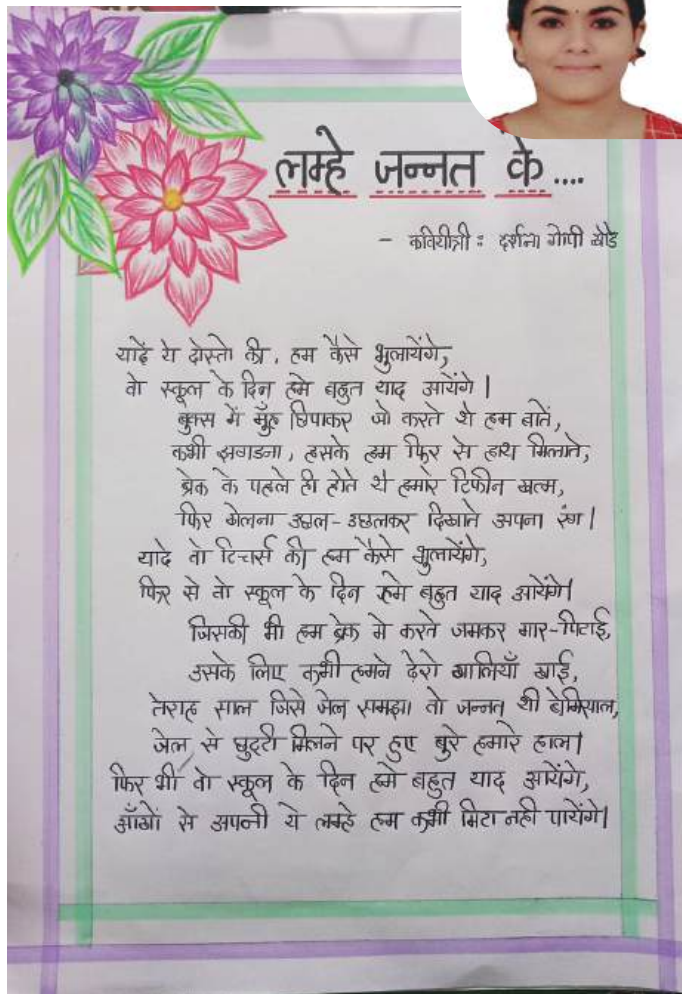 लम्हे जन्नत के....
- कवियीत्री : दर्शना गोपी खोडे
यादें ये दोस्तो की, हम कैसे भुलायेंगे,
वो स्कूल के दिन हमे बहुत याद आयेंगे |
बुक्स में मुँह छिपाकर जो करते थे हम बातें,
कभी झगडना, हसके हम फिर से हाथ मिलाते,
ब्रेक के पहले ही होते थे हमारे टिफीन खत्म,
फिर खेलना उछल-उछलकर दिखाते अपना रंग |
यादे वो टिचर्स की हम कैसे भुलायेंगे,
फिर से वो स्कूल के दिन हमे बहुत याद आयेंगे|
जिसकी भी हम ब्रेक मे करते जमकर मार-पिटाई,
उसके लिए कभी हमने ढेरो गालियाँ खाई,
तेराह साल जिसे जेल समझा वो जन्नत थी बेमिसाल,
जेल से छुट्टी मिलने पर हुए बुरे हमारे हाल|
फिर भी वो स्कूल के दिन हमे बहुत याद आयेंगे,
आँखों से अपनी ये लम्हे हम कभी मिटा नही पायेंगे|